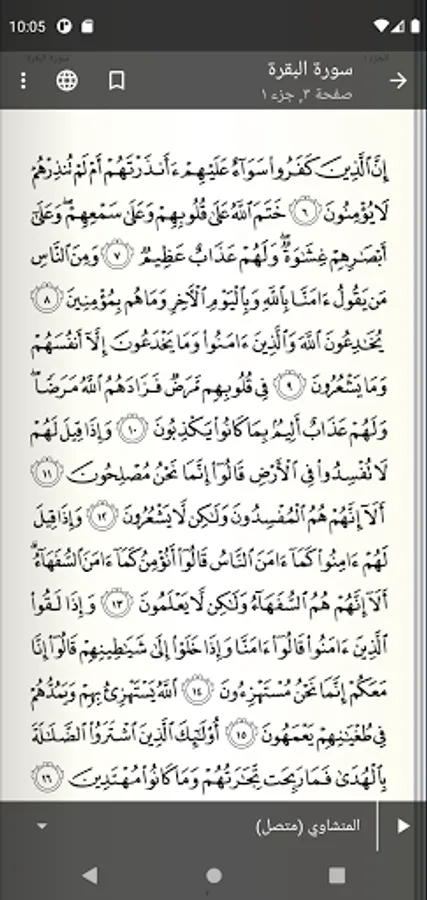 10:05
سورة البقرة
صفحة ٣, جزء ١
إِنَّ ٱلَّذِينَ كَفَرُوا۟ سَوَآءٌ عَلَيْهِمْ ءَأَنذَرْتَهُمْ أَمْ لَمْ تُنذِرْهُمْ
لَا يُؤْمِنُونَ ٦ خَتَمَ ٱللَّهُ عَلَىٰ قُلُوبِهِمْ وَعَلَىٰ سَمْعِهِمْ ۖ وَعَلَىٰٓ
أَبْصَـٰرِهِمْ غِشَـٰوَةٌ ۖ وَلَهُمْ عَذَابٌ عَظِيمٌ ٧ وَمِنَ ٱلنَّاسِ
مَن يَقُولُ ءَامَنَّا بِٱللَّهِ وَبِٱلْيَوْمِ ٱلْـَٔاخِرِ وَمَا هُم بِمُؤْمِنِينَ ٨
يُخَـٰدِعُونَ ٱللَّهَ وَٱلَّذِينَ ءَامَنُوا۟ وَمَا يَخْدَعُونَ إِلَّآ أَنفُسَهُمْ
وَمَا يَشْعُرُونَ ٩ فِى قُلُوبِهِم مَّرَضٌ فَزَادَهُمُ ٱللَّهُ مَرَضًا ۖ
وَلَهُمْ عَذَابٌ أَلِيمٌۢ بِمَا كَانُوا۟ يَكْذِبُونَ ١٠ وَإِذَا قِيلَ لَهُمْ
لَا تُفْسِدُوا۟ فِى ٱلْأَرْضِ قَالُوٓا۟ إِنَّمَا نَحْنُ مُصْلِحُونَ ١١
أَلَآ إِنَّهُمْ هُمُ ٱلْمُفْسِدُونَ وَلَـٰكِن لَّا يَشْعُرُونَ ١٢ وَإِذَا قِيلَ
لَهُمْ ءَامِنُوا۟ كَمَآ ءَامَنَ ٱلنَّاسُ قَالُوٓا۟ أَنُؤْمِنُ كَمَآ ءَامَنَ ٱلسُّفَهَآءُ ۗ
أَلَآ إِنَّهُمْ هُمُ ٱلسُّفَهَآءُ وَلَـٰكِن لَّا يَعْلَمُونَ ١٣ وَإِذَا لَقُوا۟
ٱلَّذِينَ ءَامَنُوا۟ قَالُوٓا۟ ءَامَنَّا وَإِذَا خَلَوْا۟ إِلَىٰ شَيَـٰطِينِهِمْ قَالُوٓا۟ إِنَّا
مَعَكُمْ إِنَّمَا نَحْنُ مُسْتَهْزِءُونَ ١٤ ٱللَّهُ يَسْتَهْزِئُ بِهِمْ وَيَمُدُّهُمْ
فِى طُغْيَـٰنِهِمْ يَعْمَهُونَ ١٥ أُو۟لَـٰٓئِكَ ٱلَّذِينَ ٱشْتَرَوُا۟ ٱلضَّلَـٰلَةَ
بِٱلْهُدَىٰ فَمَا رَبِحَت تِّجَـٰرَتُهُمْ وَمَا كَانُوا۟ مُهْتَدِينَ ١٦
المنشاوي (متصل)